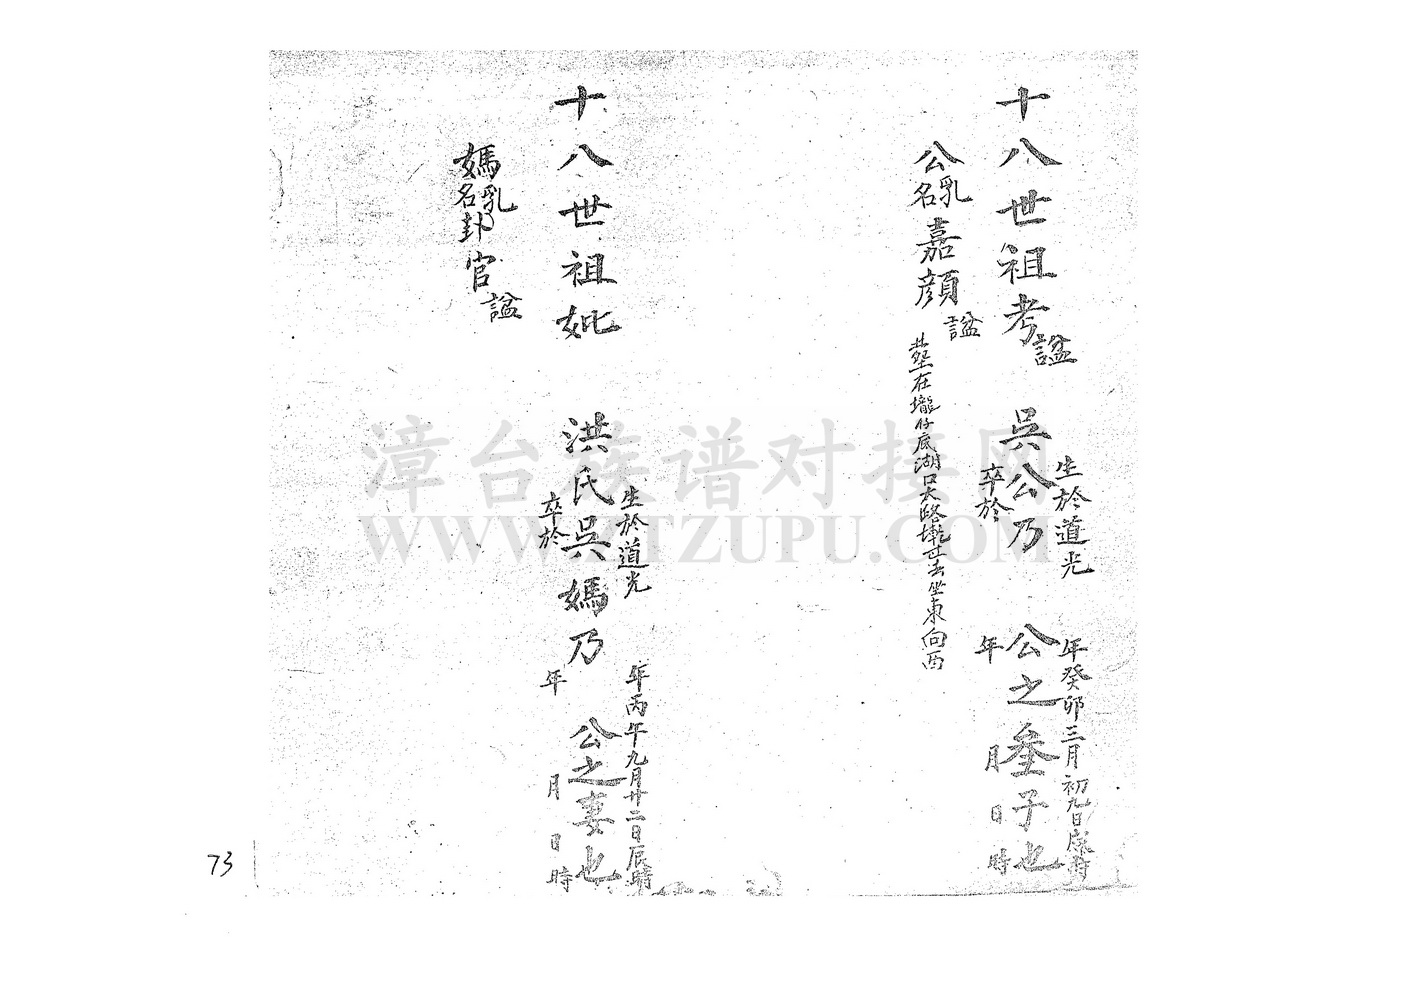 十八世祖考諡 吳公乃 公之叁子也
生於道光 年癸卯三月初九日 時
卒於 年 月 日 時
公乳名嘉顏諡
塟在壠仔底湖口大路墘 坐東向西
十八世祖妣 洪氏吳媽乃 公之妻也
生於道光 年丙午九月廿二日辰時
卒於 年 月 日 時
媽乳名卦官諡
漳台族谱对接网
WWW.ZTZUPU.COM
73